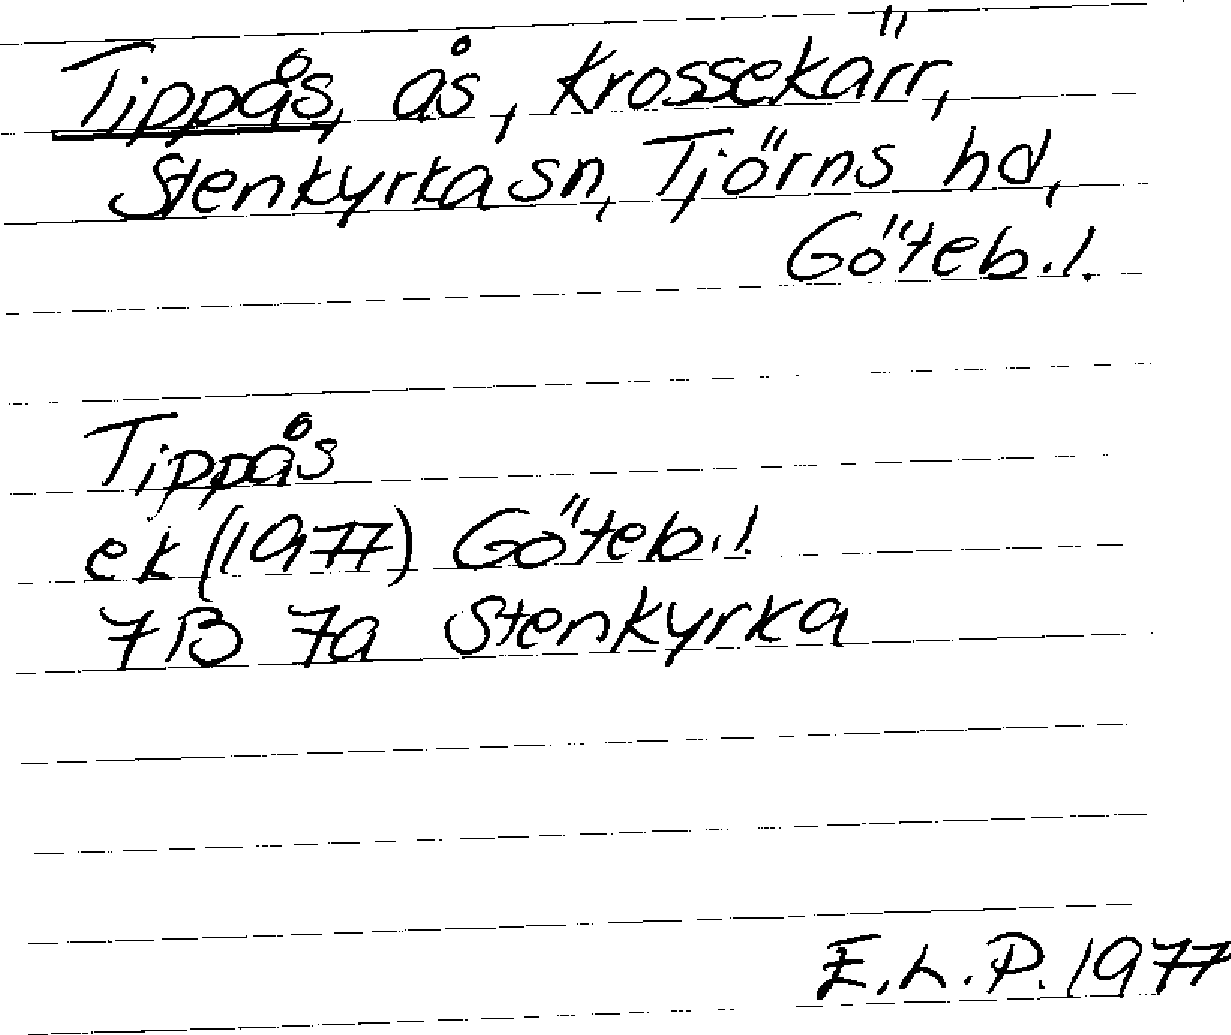 Tippås, ås, Krossekärr,
Stenkyrka sn, Tjörns hd,
Göteb. l.
Tippås
ek (1977) Göteb. l.
7B 7a Stenkyrka
E.L.P. 1977